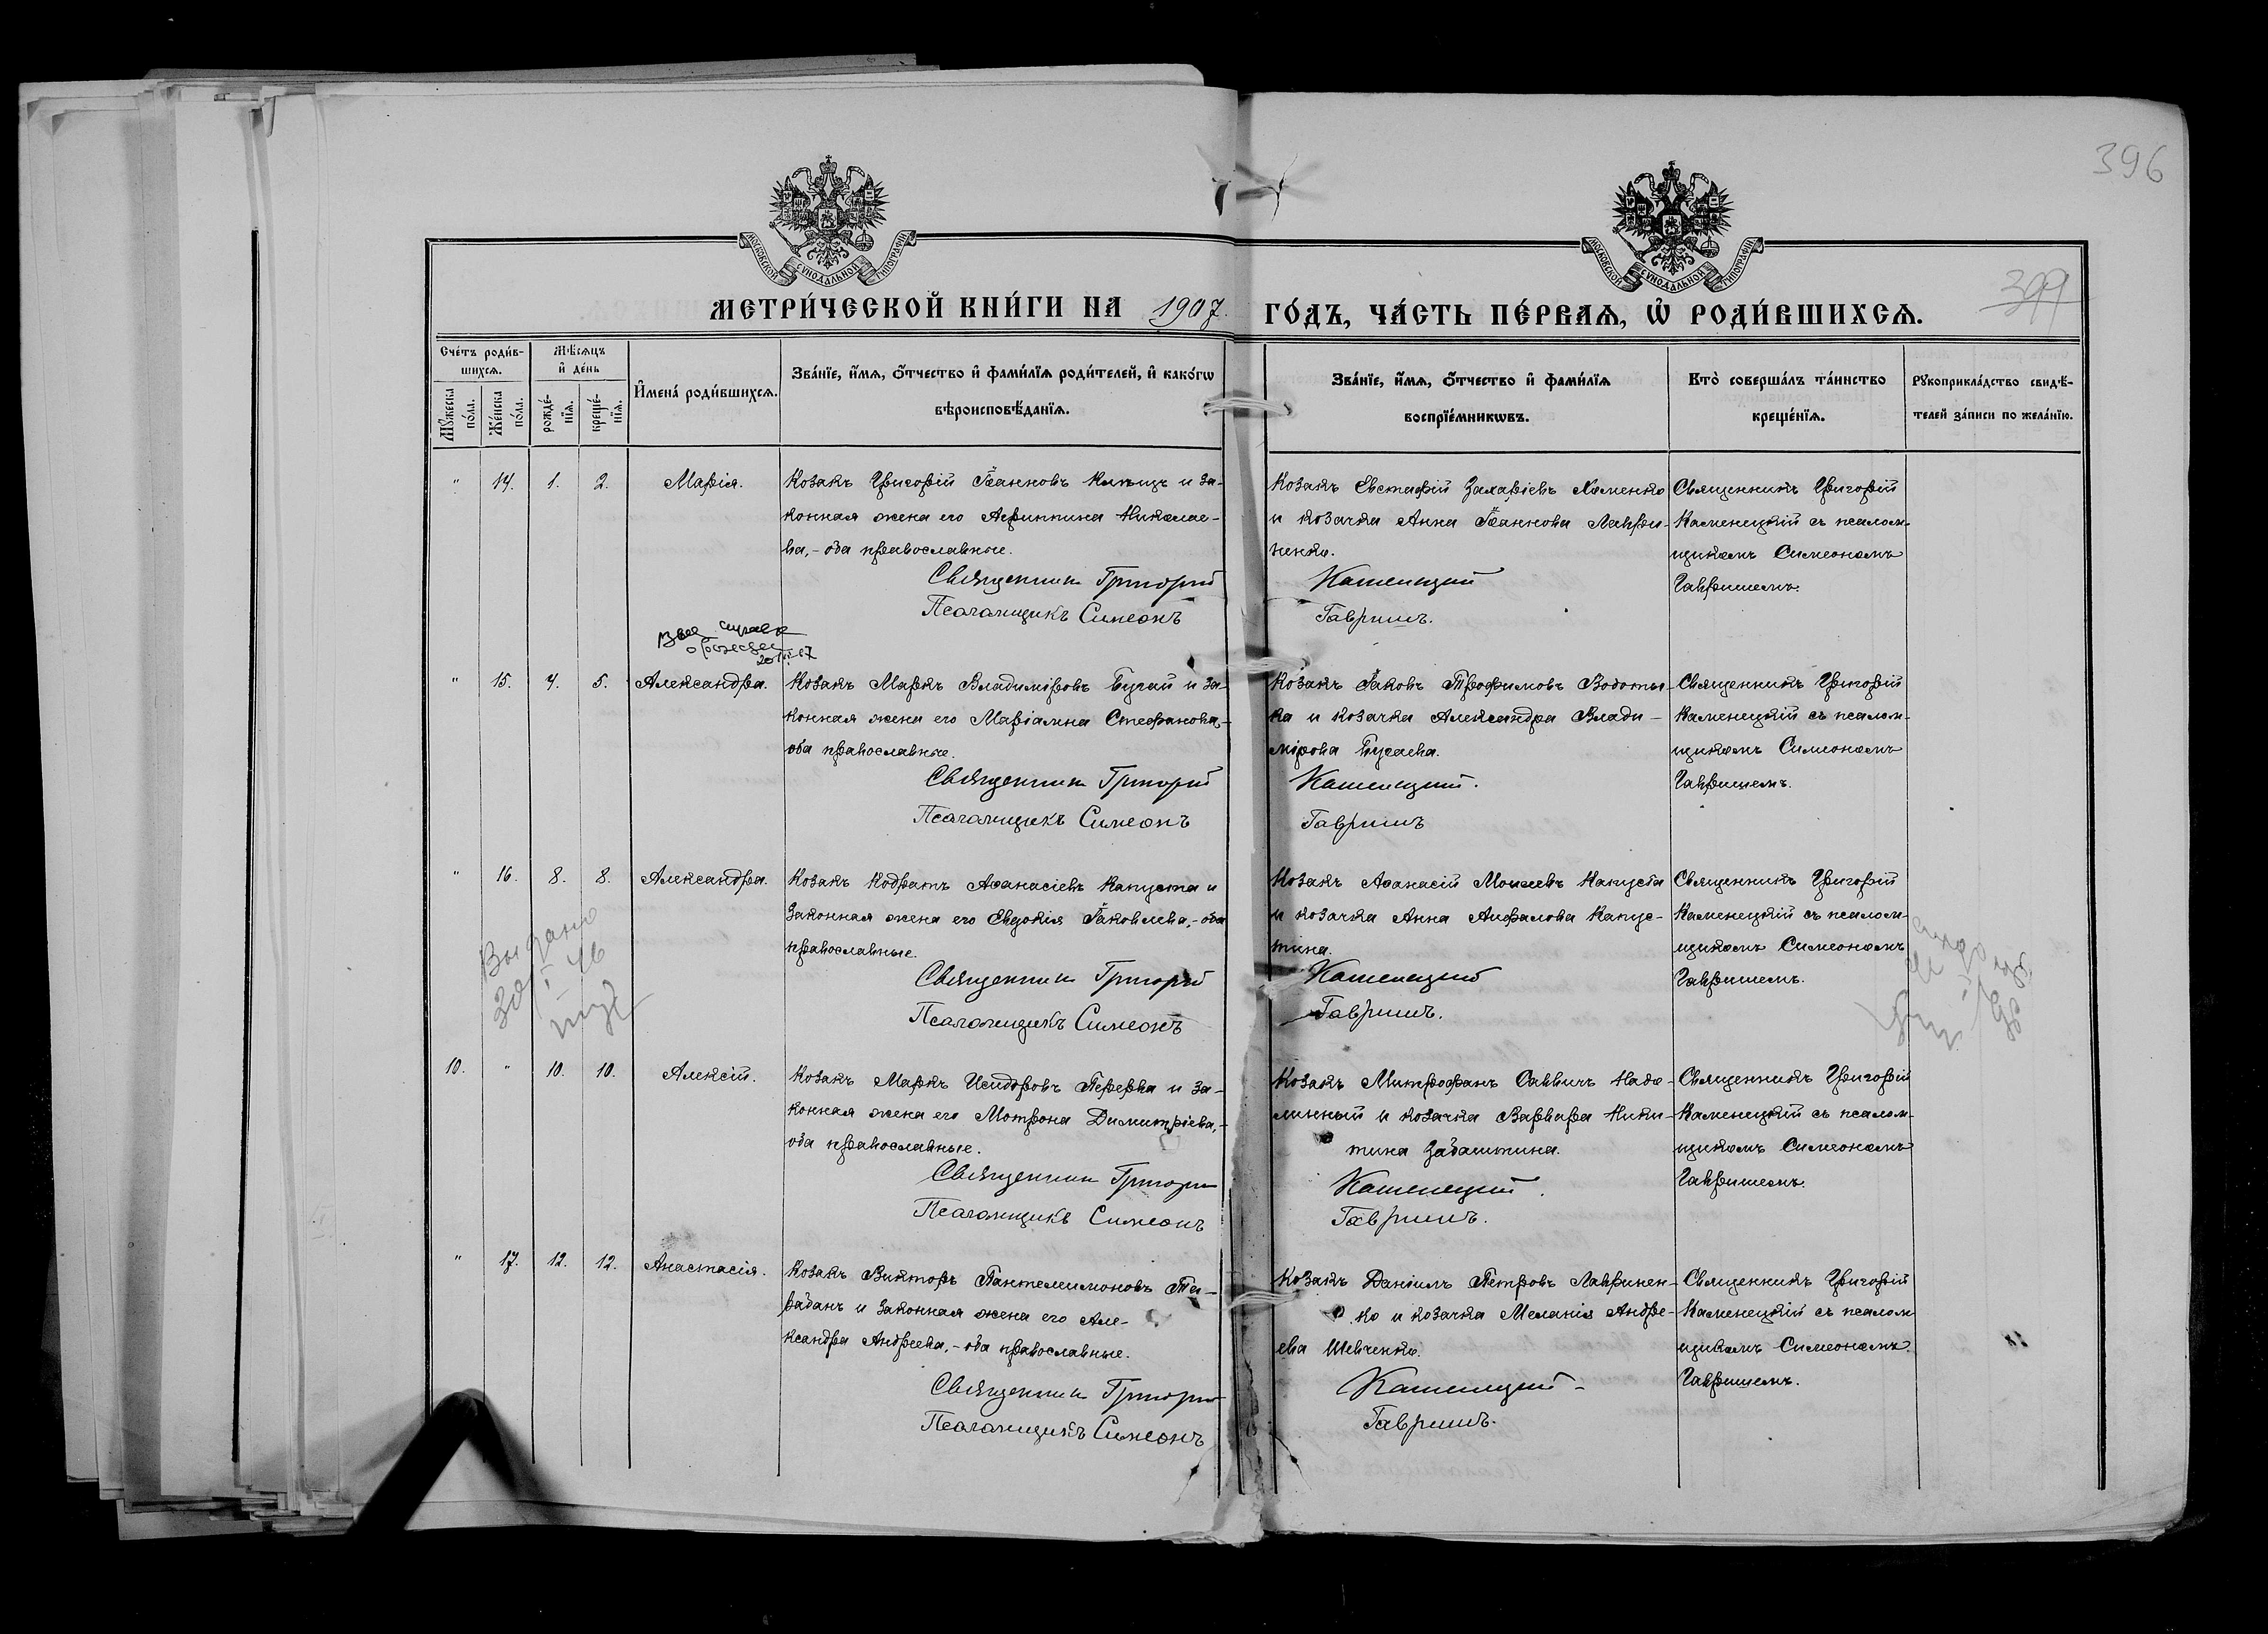 396
МОСКОВСКОЙ СУНОДАЛЬНОЙ ТИПОГРАФІИ
МОСКОВСКОЙ СУНОДАЛЬНОЙ ТИПОГРАФІИ
399
МЕТРИ́ЧЕСКОЙ КНИ́ГИ НА 1907. ГО́ДЪ, ЧА́СТЬ ПЕ́РВАѦ, Ѡ҆ РОДИ́ВШИХСѦ.
Сче́тъ роди́в-
шихсѧ.
Мѣ́сѧцъ
и҆ де́нь
Мꙋ́жеска
по́ла.
Же́нска
по́ла.
рожде́-
нїѧ.
креще́-
нїѧ.
И҆мена̀ роди́вшихсѧ.
Зва́нїе, и҆́мѧ, ѻ҆́тчество и҆ фами́лїѧ роди́телей, и҆ како́гѡ
вѣроисповѣ́данїѧ.
Зва́нїе, и҆́мѧ, ѻ҆́тчество и҆ фами́лїѧ
воспрїе́мникѡвъ.
Кто̀ соверша́лъ та́инство
креще́нїѧ.
Рꙋкоприкла́дство свидѣ́-
телей за́писи по жела́нїю.
" 14. 1. 2. Марія.
Козакъ Григорій Іоанновъ и за-
конная жена его Агриппина Николае-
ва,- оба православные.
Священник Григорій
Псаломщикъ Симеонъ
Козакъ Евстафій Захаріевъ Хоменко
и козачка Анна Іоаннова Лаври-
ненко.
Каменецкий
Гавришъ.
Священникъ Григорій
Каменецкій съ псалом-
щикомъ Симеономъ
Гавришемъ.
" 15. 4. 5. Александра.
Козакъ Маркъ Владиміровъ Бугай и за-
конная жена его Маріамна Стефанова,-
оба православные.
Священник Григорій
Псаломщикъ Симеонъ
Козакъ Іаковъ Трофимовъ
и козачка Александра Влади-
мірова Бугаева.
Каменецкий.
Гавришъ
Священникъ Григорій
Каменецкій съ псалом-
щикомъ Симеономъ
Гавришемъ.
" 16. 8. 8. Александра.
Козакъ Кодратъ Аѳанасіевъ Капуста и
законная жена его Евдокія Іаковлева,- оба
православные.
Священник Григорій
Псаломщикъ Симеонъ
Козакъ Аѳанасій Моисеевъ Капуста
и козачка Анна Капус-
тина.
Каменецкий
Гавришъ.
Священникъ Григорій
Каменецкій съ псалом-
щикомъ Симеономъ
Гавришемъ.
Выдано
10. " 10. 10. Алексій.
Козакъ Маркъ Исидоровъ Перерва и за-
конная жена его Мотрона Димитріева,-
оба православные.
Священник Григорій
Псаломщикъ Симеонъ
Козакъ Митрофанъ Саввичъ Надо-
линный и козачка Варвара Ники-
тина Забаштина.
Каменецкий.
Гавришъ.
Священникъ Григорій
Каменецкій съ псалом-
щикомъ Симеономъ
Гавришемъ.
" 17. 12. 12. Анастасія.
Козакъ Викторъ Пантелеимоновъ
и законная жена его Але-
ксандра Андреева,- оба православные.
Священник Григорій
Псаломщикъ Симеонъ
Козакъ Даніилъ Петровъ Лавринен-
ко и козачка Меланія Андре-
ева Шевченко.
Каменецкий
Гавришъ.
Священникъ Григорій
Каменецкій съ псалом-
щикомъ Симеономъ
Гавришемъ.